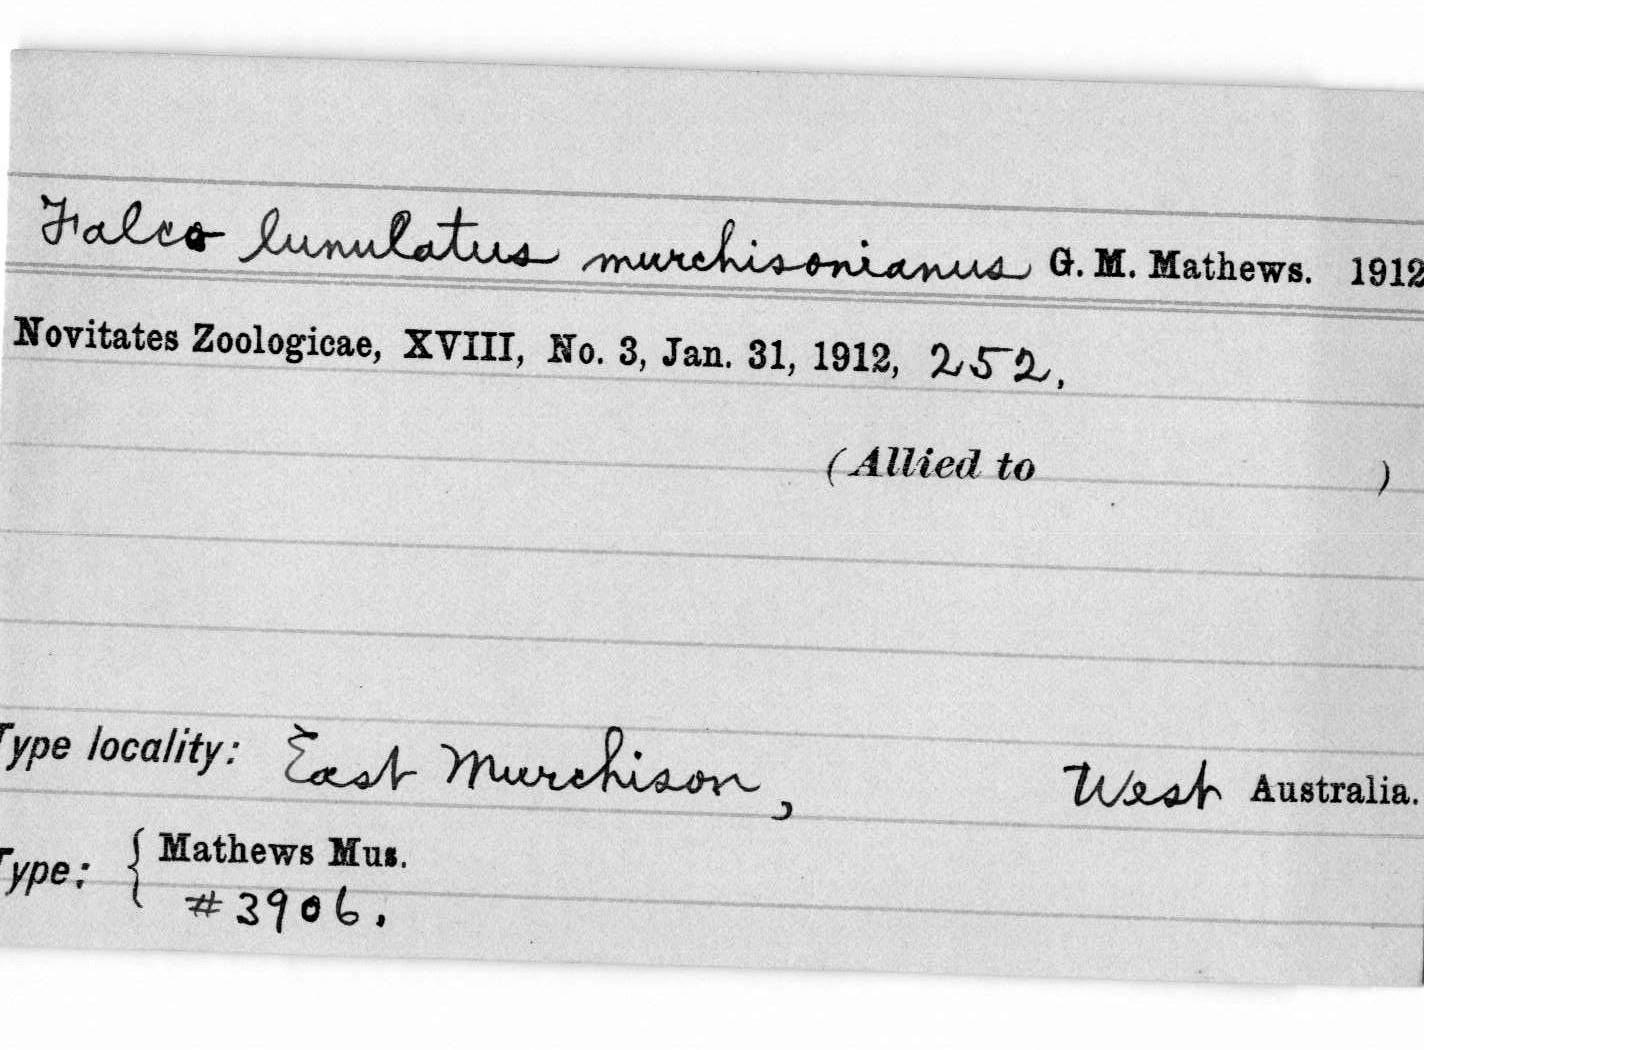 Falco lunulatus murchisonianus G. M. Mathews. 1912
Novitates Zoologicae, XVIII, No. 3, Jan. 31, 1912, 252.
(Allied to )
Type locality: East Murchison, West Australia.
Type: { Mathews Mus.
#3906.